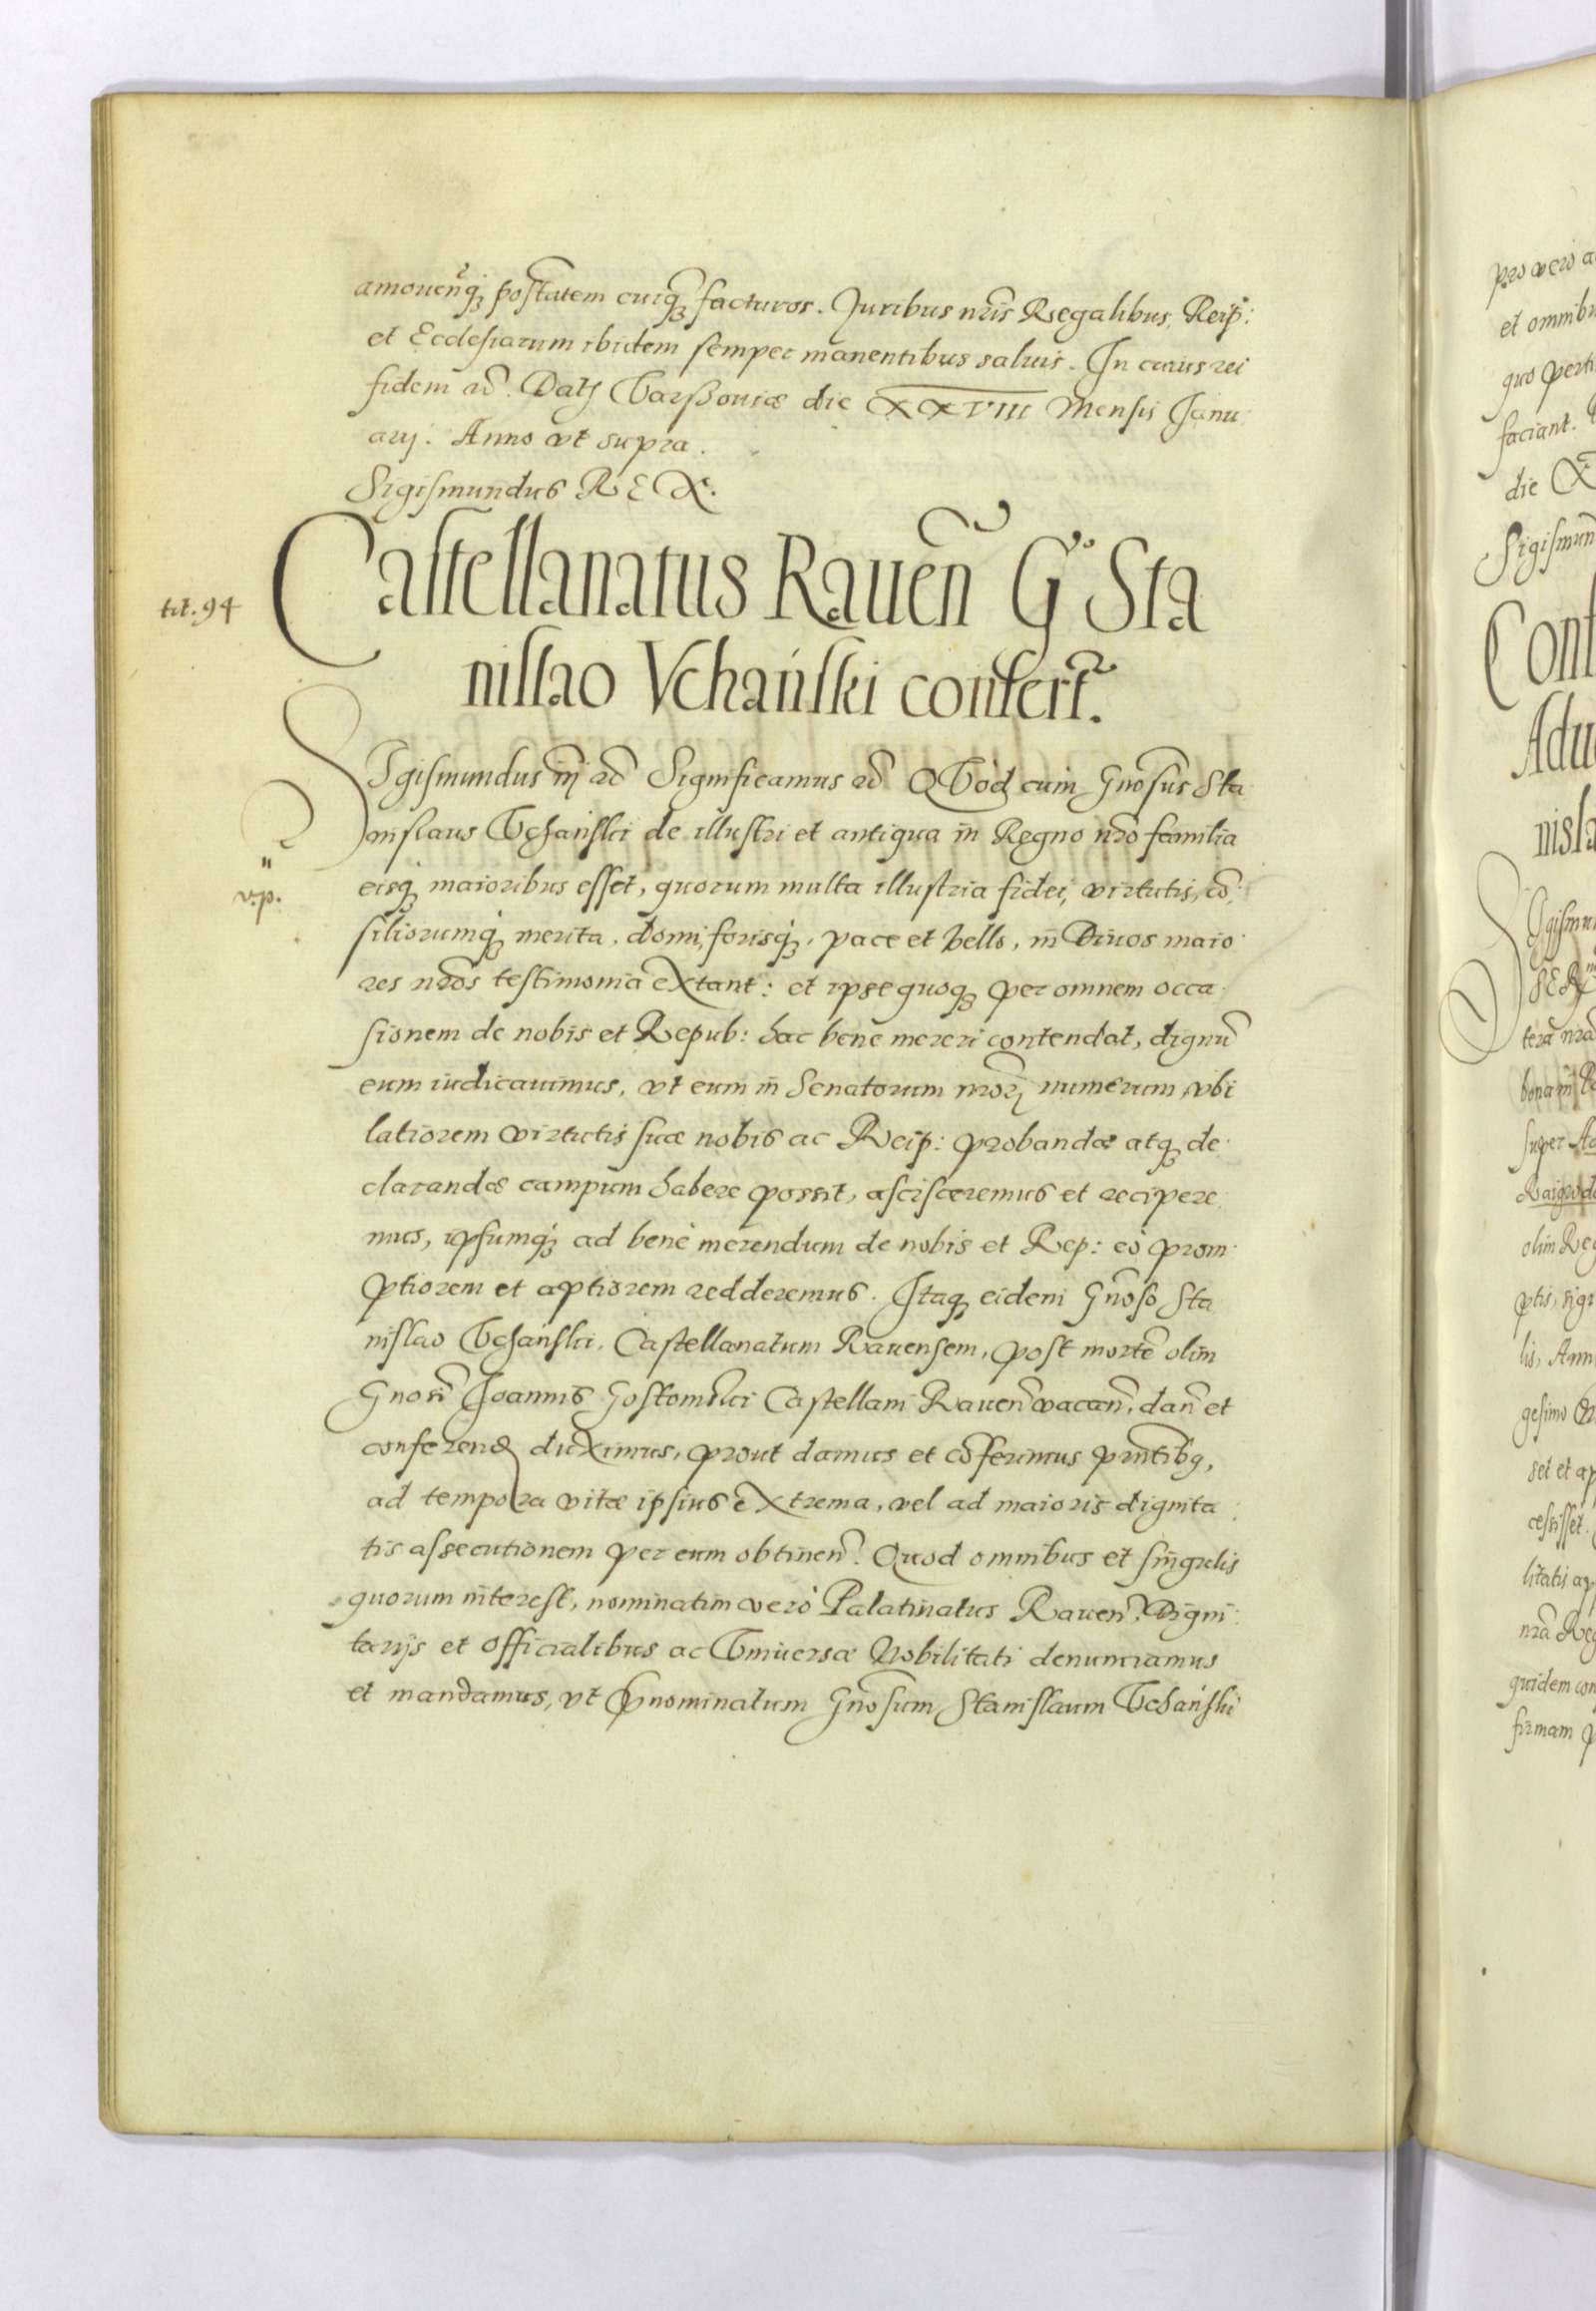 amouenq₃ poštatem cuiq₃ facturos. Juribus nr̃is Regalibus, Reip̃:
et Ecclesiarum ibidem semper manentibus saluis. In cuius rei
fidem ac̃. Datꝭ Varßouiæ die XXVIII Mensis Janu
arij. Anno vt supra.
Sigismundus REX.
tit. 94
Castellanatus Rauen̄ G° Sta
nislao Vchański confert̃.
Sigismundus iij ac̃ Significamus ac̃ QVod cum Gnõsus Sta
nislaus Vchański de illustri et antiqua in Regno nr̃o familia
eisq₃ maioribus esset, quorum multa illustria fidei, virtutis, cõ
siliorumq₃ merita, domi, forisq₃, pace et bello, in Diuos maio
res nr̃os testimonia eXtant: et ipse quoq₃ per omnem occa
sionem de nobis et Repub: hac bene mereri contendat, dignũ
eum iudicauimus, vt eum in Senatorum nr̃oꝝ numerum, vbi
latiorem virtutis suæ nobis ac Reip: probandæ atq₃ de
clarandæ campum habere possit, ascisceremus et recipere
mus, ipsumq₃ ad bene merendum de nobis et Rep: eò prom
ptiorem et aptiorem redderemus. Itaq₃ eidem Gnõso Sta
nislao Vchański, Castellanatum Rauensem, post mortẽ olim
Gnosi Joannis Gostomski Castellani Rauen̄ vacan̄, dan̄ et
conferend̃ duXimus, prout damus et cõferimus pn̄tibg,
ad tempora vitæ ipsius eXtrema, vel ad maioris dignita
tis assecutionem per eum obtinen̄. Quod omnibus et singulis
quorum interest, nominatim verò Palatinatus Rauen̄. Digni
tarijs et Officialibus ac Vniuersæ Nobilitati denunciamus
et mandamus, vt p̃nominatum Gnõsum Stanislaum Vchański